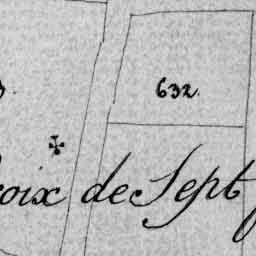 632.
oix de Sept